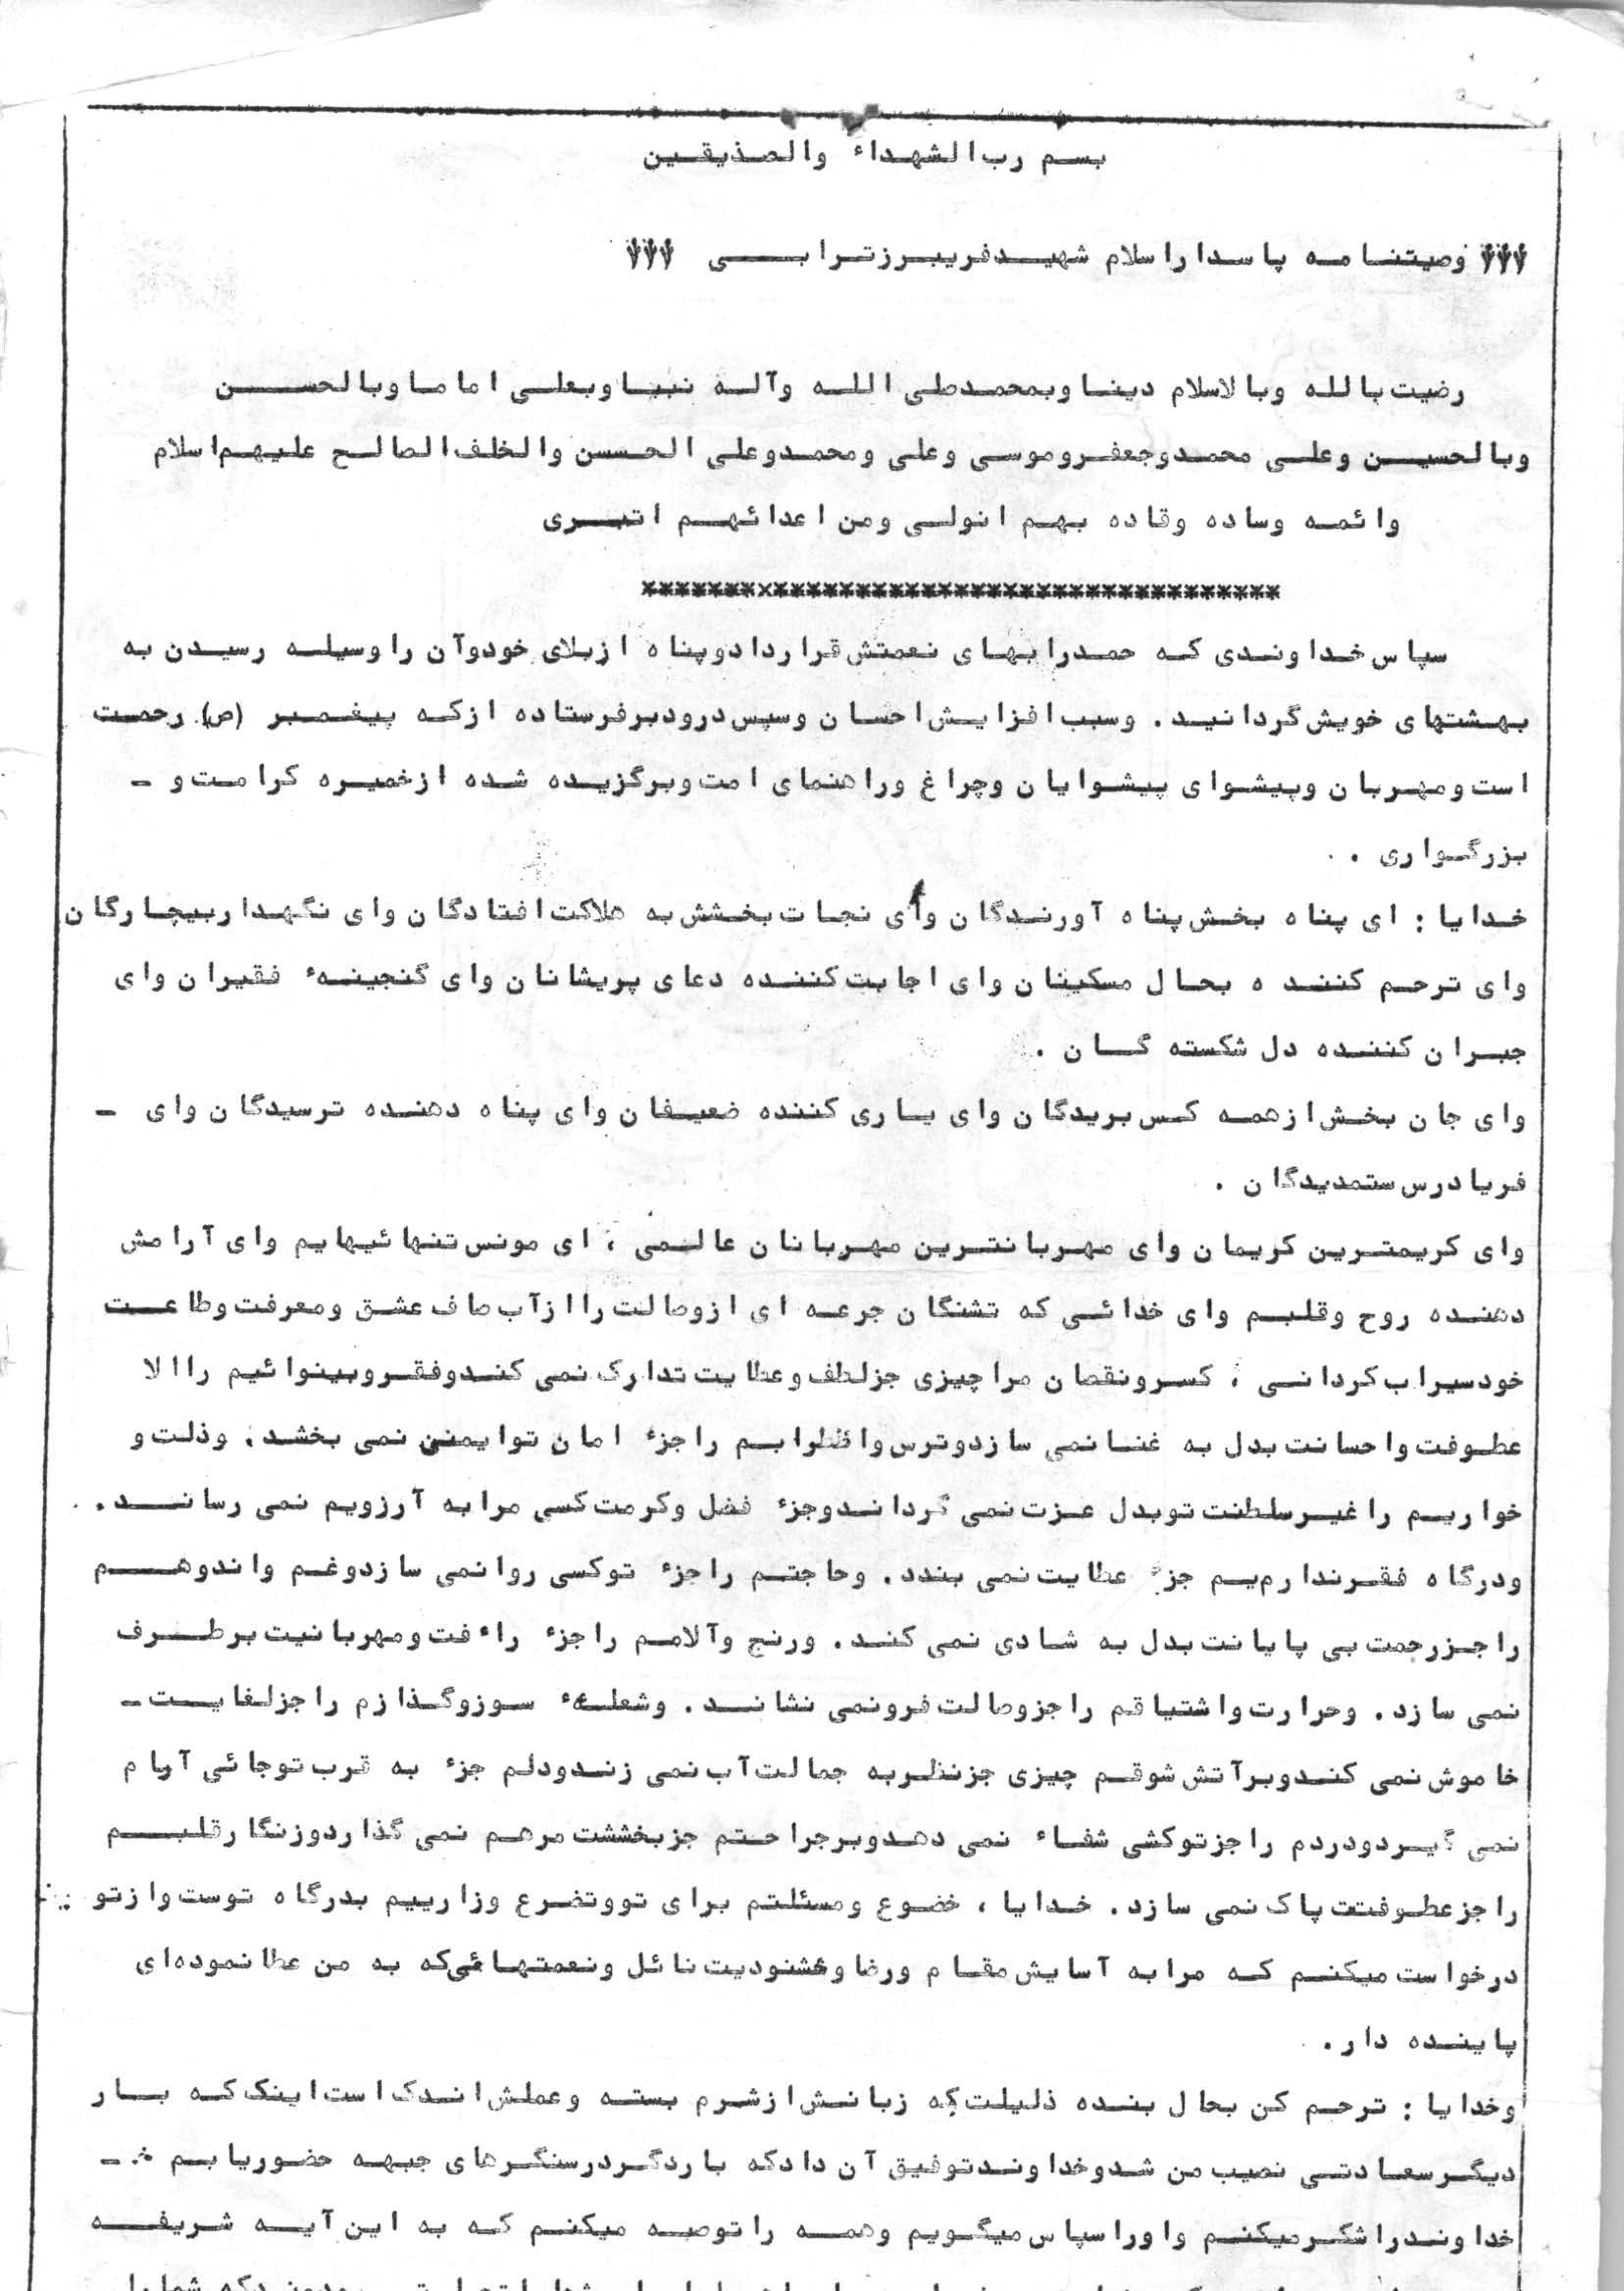 بسم رب الشهداء والصذیقین
وصیتنامه پاسدار اسلام شهید فریبرز ترابی
رضیت بالله وبالاسلام دینا وبمحمد صلی الله وآله نبیا وبعلی اماما وبالحسن
وبالحسین وعلی محمد وجعفر وموسی وعلی ومحمد وعلی الحسن والخلف الصالح علیهم اسلام
وائمه وساده وقاده بهم انولی ومن اعدائهم اتبری
***************************************
سپاس خداوندی که حمد را بهای نعمتش قرارداد و پناه از بلای خود و آن را وسیله رسیدن به
بهشتهای خویش گردانید. وسبب افزایش احسان وسپس درود بر فرستاده ازکه پیغمبر (ص) رحمت
است و مهربان و پیشوای پیشوایان و چراغ و راهنمای امت و برگزیده شده از خمیره کرامت و -
بزرگواری .
خدایا : ای پناه بخش پناه آورندگان وای نجات بخشش به هلاکت افتادگان وای نگهدار بیچارگان
وای ترحم کننده بحال مسکینان وای اجابت کننده دعای پریشانان وای گنجینهء فقیران وای
جبران کننده دل شکسته گان .
وای جان بخش از همه کس بریدگان وای یاری کننده ضعیفان وای پناه دهنده ترسیدگان وای -
فریادرس ستمدیدگان .
وای کریمترین کریمان وای مهربانترین مهربانان عالمی ، ای مونس تنهائیهایم وای آرامش
دهنده روح وقلبم وای خدائی که تشنگان جرعه ای از وصالت را از آب صاف عشق ومعرفت وطاعت
خود سیراب کردانی ، کسر و نقصان مرا چیزی جز لطف و عطایت تدارک نمی کند و فقر و بینوائیم را الا
عطوفت و احسانت بدل به غنا نمی سازد و ترس و اظطرابم را جزء امان تو ایمنن نمی بخشد. وذلت و
خواریم را غیر سلطنت تو بدل عزت نمی گرداند و جزء فضل و کرمت کسی مرا به آرزویم نمی رساند.
ودرگاه فقر ندارم یم جزء عطایت نمی بندد. وحاجتم را جزء تو کسی روا نمی سازد و غم و اندوهم
را جز رحمت بی پایانت بدل به شادی نمی کند. ورنج وآلامم را جزء راءفت و مهربانیت برطرف
نمی سازد. وحرارت و اشتیاقم را جز وصالت فرو نمی نشاند. وشعلهء سوز و گذازم را جز لقایت -
خاموش نمی کند و بر آتش شوقم چیزی جز نظر به جمالت آب نمی زند و دلم جزء به قرب تو جائی آرام
نمی گیرد و دردم را جز تو کشی شفاء نمی دهد و بر جراحتم جز بخششت مرهم نمی گذارد و زنگار قلبم
را جز عطوفتت پاک نمی سازد. خدایا ، خضوع و مسئلتم برای تو و تضرع وزارییم بدرگاه توست و از تو
درخواست میکنم که مرا به آسایش مقام ورضا و خشنودیت نائل ونعمتهائی که به من عطا نموده ای
پاینده دار.
وخدایا : ترحم کن بحال بنده ذلیلت که زبانش از شرم بسته وعملش اندک است اینک که بار
دیگر سعادتی نصیب من شد و خداوند توفیق آن داد که بار دگر در سنگرهای جبهه حضور یابم -
خداوند را شکر میکنم و او را سپاس میگویم وهمه را توصیه میکنم که به این آیه شریفه